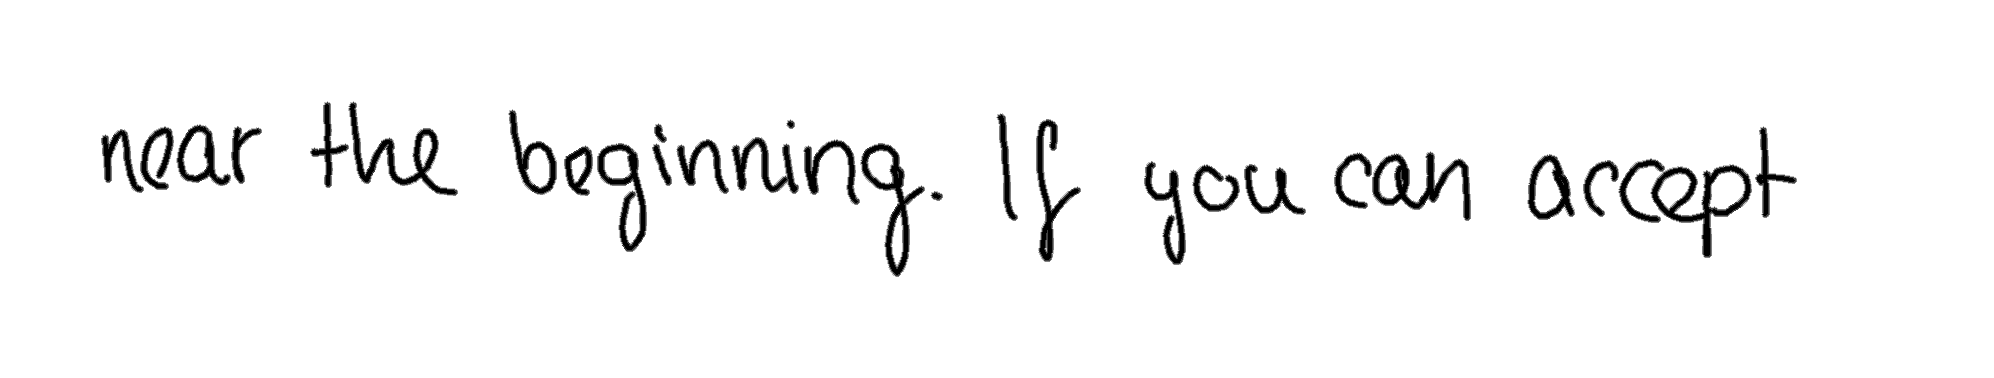 near the beginning. If you can accept